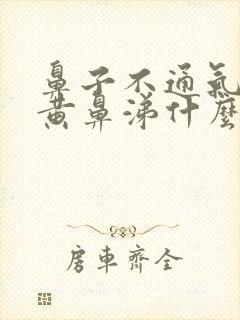 鼻子不通氣
黃鼻涕什麼
房車齊全